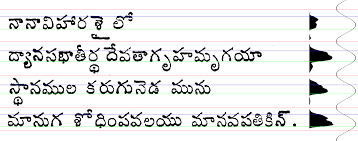 నానావిహార శైలో
ద్యానసభాతీర్థ దేవతాగృహమృగయా
స్థానముల కరుగునెడ మును
మానుగ శోధింపవలయు మానవపతికిన్.